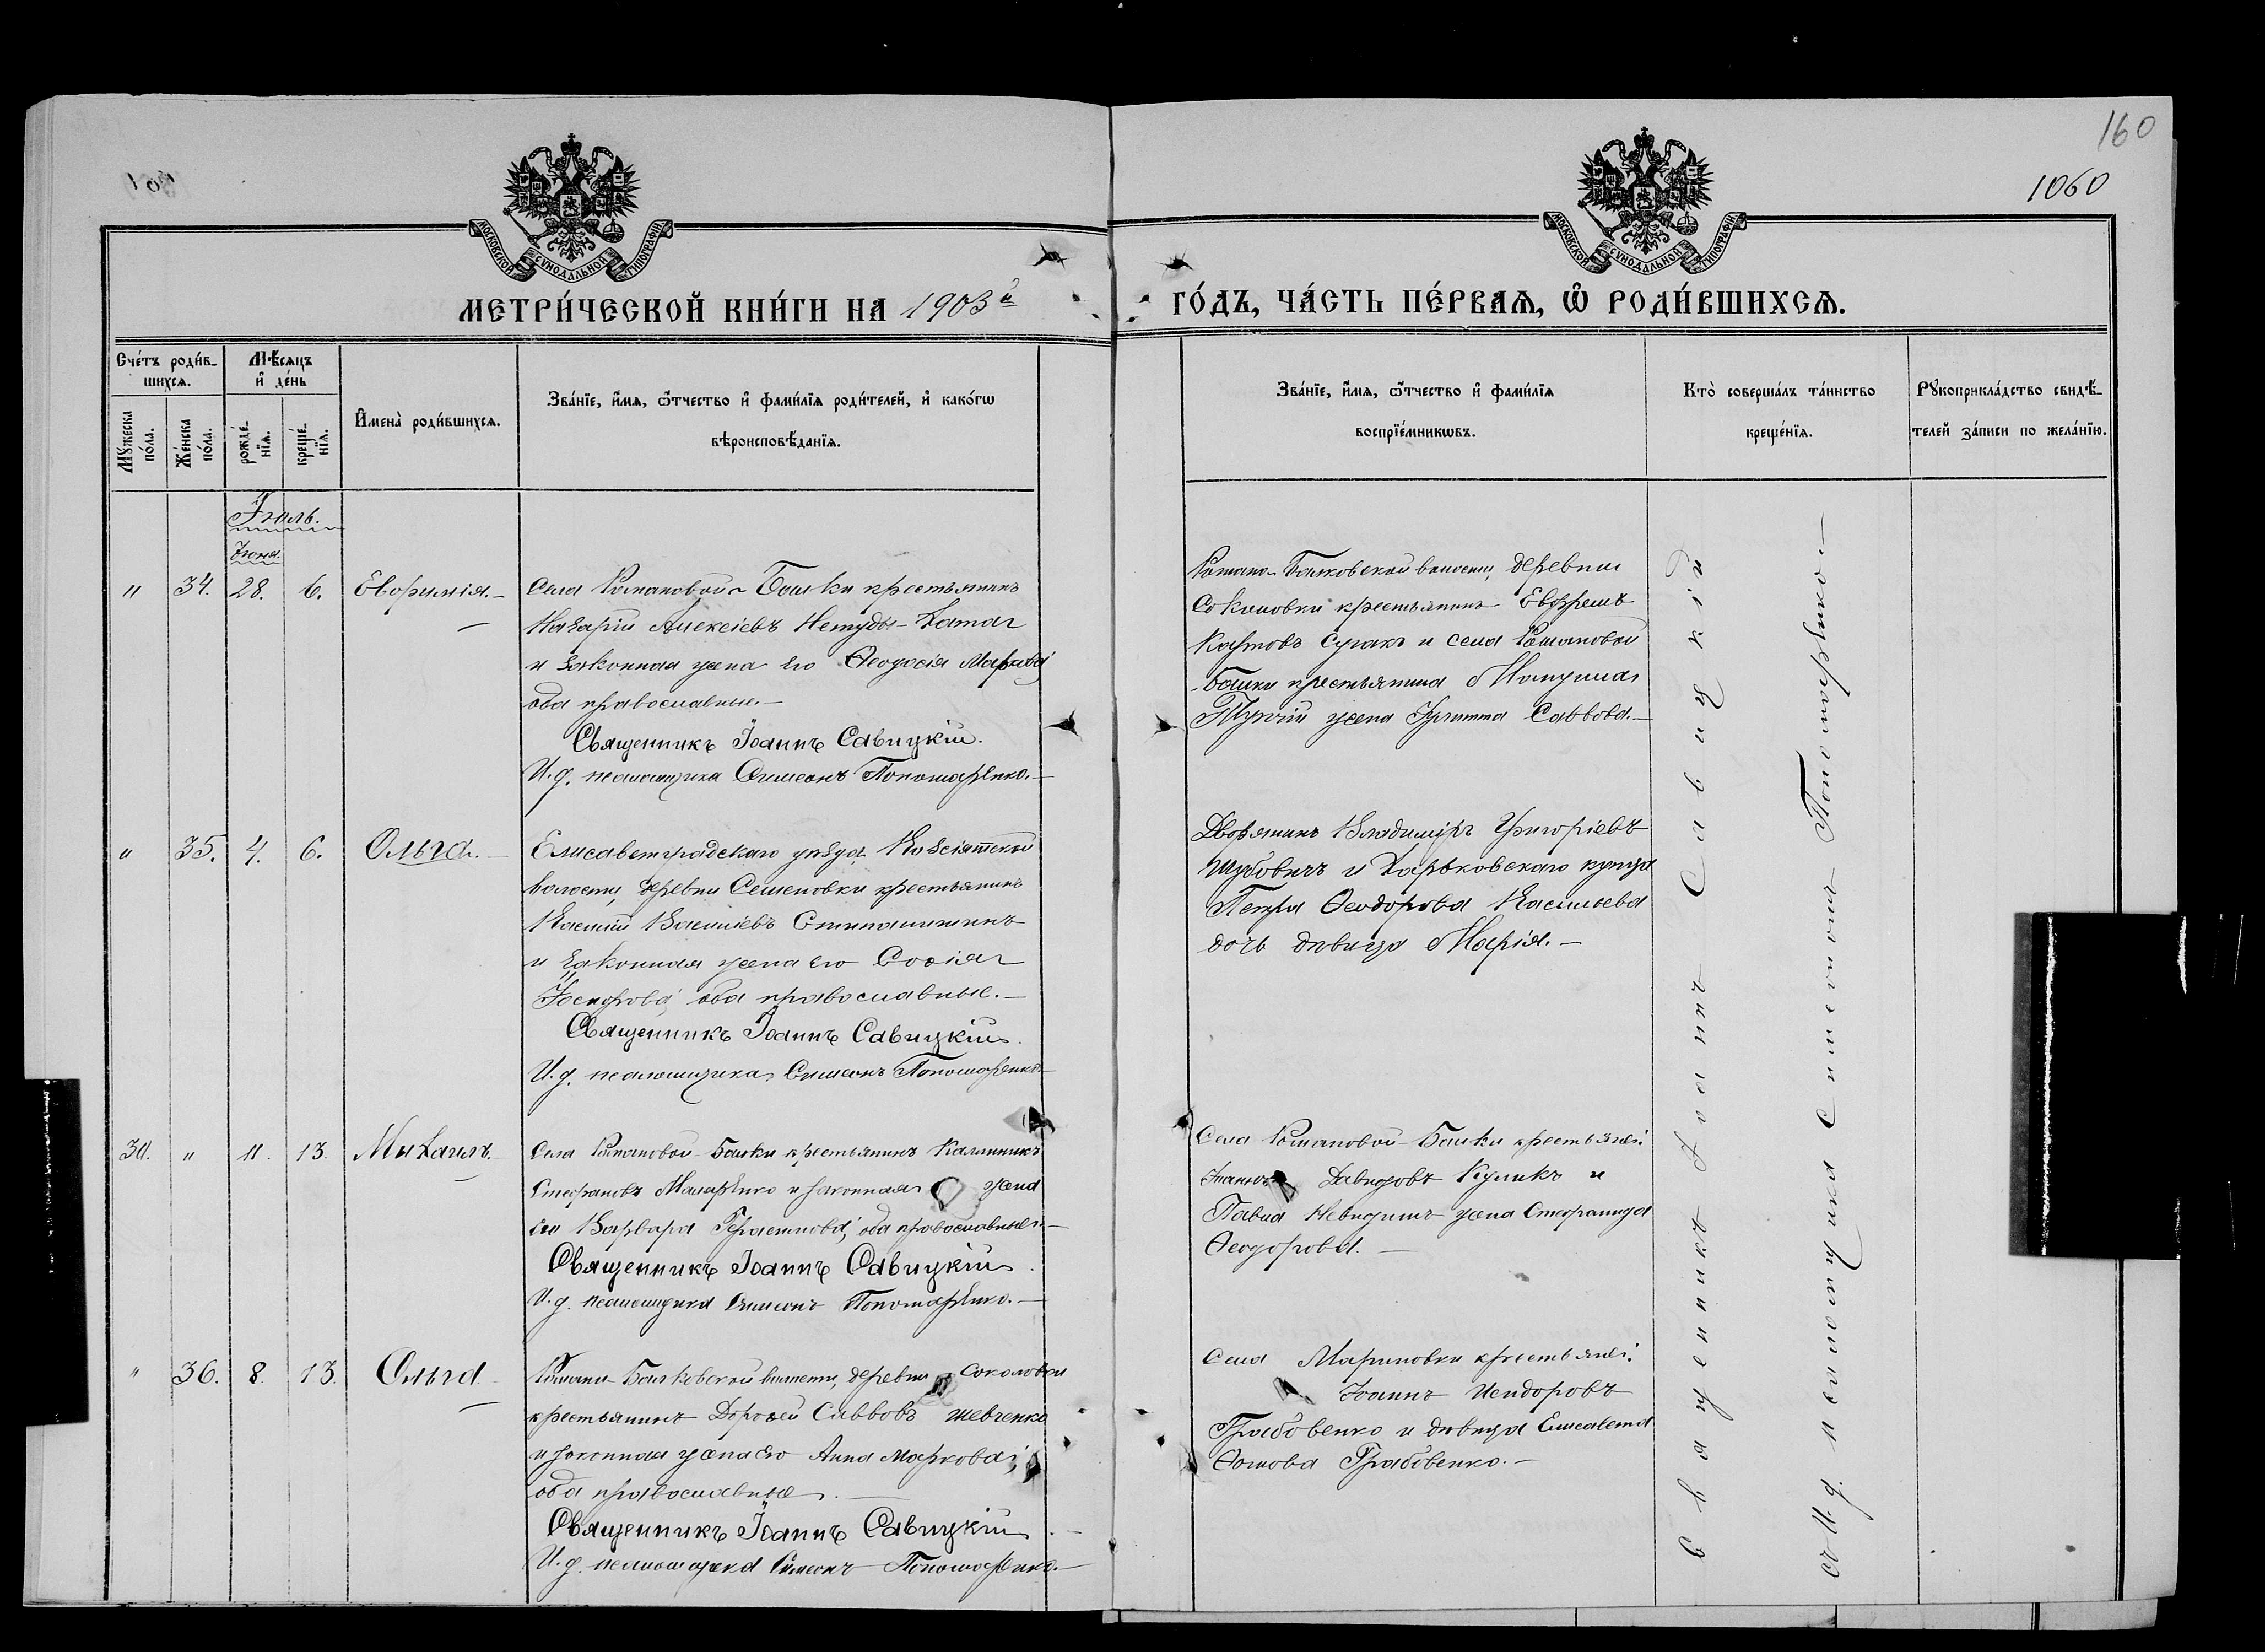 160
1060
МОСКОВСКОЙ СѴНОДАЛЬНОЙ ТИПОГРАФІИ
МОСКОВСКОЙ СѴНОДАЛЬНОЙ ТИПОГРАФІИ
МЕТРИ́ЧЕСКОЙ КНИ́ГИ НА 1903й
ГО́ДЪ, ЧА́СТЬ ПЕ́РВАЯ, Ѽ РОДИ́ВШИХСЯ.
Сче́тъ роди́в-
шихсѧ.
Мꙋжеска по́ла.
Же́нска по́ла.
Мѣ́сѧцъ
и҆ де́нь
рожде́-
нїѧ.
креще́-
нїѧ.
И҆мена̀ роди́вшихсѧ.
Зва́нїе, и҆́мѧ, ѻ҆́тчество и҆ фами́лїѧ роди́телей, и҆ како́гѡ
вѣроисповѣ́данїѧ.
Зва́нїе, и҆́мѧ, ѻ҆́тчество и҆ фами́лїѧ
воспрїе́мникѡвъ.
Кто̀ соверша́лъ та́инство
креще́нїѧ.
Рꙋкоприкла́дство свидѣ́-
телей за́писи по жела́нїю.
Іюль.
Іюня.
" 34. 28. 6. Евфимія.
Села Романовой-Балки крестьянинъ
Назарій Алексіевъ Нетуды-Хата
и законная жена его Ѳеодосія Маркова;
оба православные.
Священникъ Іоаннъ Савицкій.
И. д. псаломщика Симеонъ Пономаренко.
Романо-Балковской волости, деревни
Соколовки крестьянинъ Евфремъ
Карповъ Сугакъ и села Романовой
Балки крестьянина
жена Іулитта Саввова.
" 35. 4. 6. Ольга.
Елисаветградскаго уѣзда
волости, деревни Семеновки крестьянинъ
Василій Василіевъ
и законная жена его Софія
оба православные.
Священникъ Іоаннъ Савицкій.
И. д. псаломщика Симеонъ Пономаренко.
Дворянинъ Владиміръ Григоріевъ
и Харьковскаго купца
Петра Ѳеодорова Васильева
дочь дѣвица Марія.
30. " 11. 13. Михаилъ.
Села Романовой-Балки крестьянинъ Каллиникъ
Стефановъ Маляренко и законная жена
его Варвара оба православные.
Священникъ Іоаннъ Савицкій.
И. д. псаломщика Симеонъ Пономаренко.
Села Романовой-Балки крестьяне:
Давидовъ Куликъ и
Павла жена Стефанида
Ѳеодорова.
" 36. 8. 13. Ольга
Романо-Балковской волости, деревни Соколовки
крестьянинъ Дороѳей Саввовъ Шевченко
и законная жена его Анна Маркова;
оба православные.
Священникъ Іоаннъ Савицкій.
И. д. псаломщика Симеонъ Пономаренко.
Села Мариновки крестьяне:
Іоаннъ Исидоровъ
Грабовенко и дѣвица Елисавета
Ѳомова Грабовенко.
Священникъ Іоаннъ Савицкій
съ И. д. псаломщика Симеономъ Пономаренко.